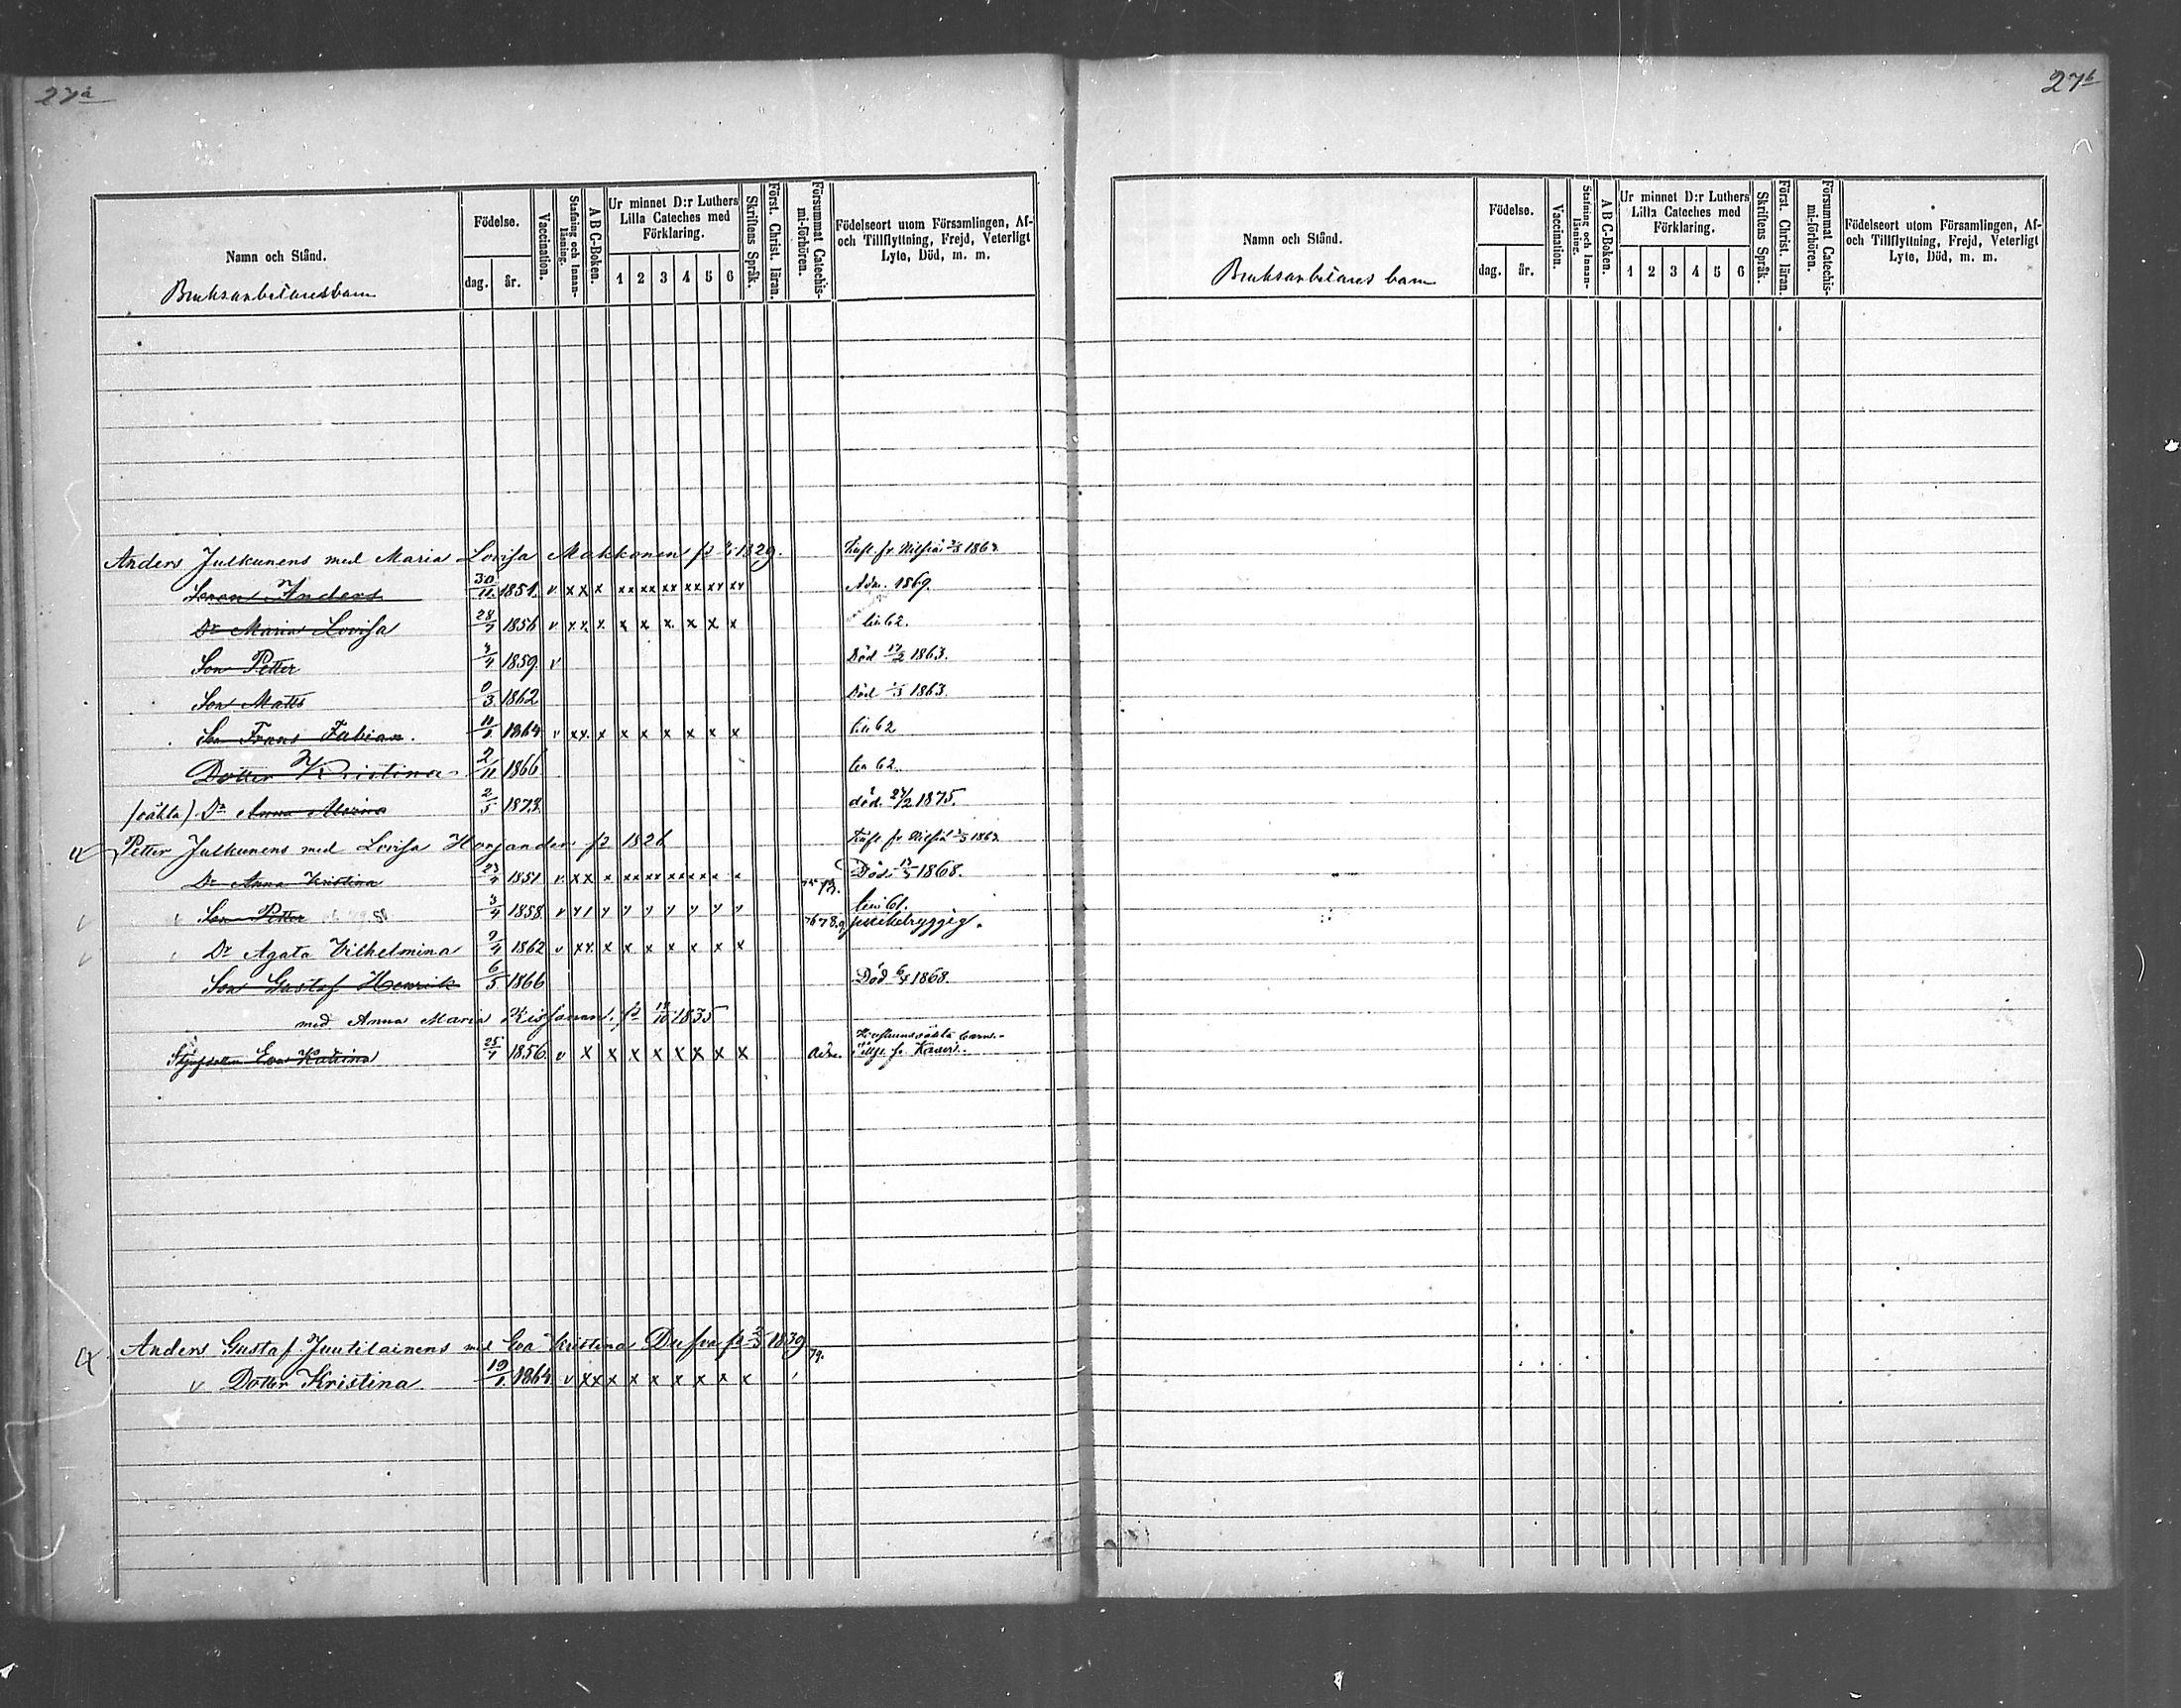 27a
Namn och Stånd.
Bruksarbetaresbarn
Födelse.
dag. år.
Vaccination.
Stafning och Innanläsning.
A B C-Boken.
Ur minnet D:r Luthers Lilla Cateches med Förklaring.
1 2 3 4 5 6
Skriftens Språk.
Först. Christ. läran.
Försummat Catechismi-förhören.
Födelseort utom Församlingen, Af- och Tillflyttning, Frejd, Veterligt Lyte, Död, m. m.
Anders Julkunens med Maria Lovisa Makkonen 1829. 1863
Sonen Anders 30/11 1851. v x x x xx xx xx xx xx xx Adm. 1869.
Dr Maria Lovisa 28/7 1856 v x x. x x x x x x x 62.
Son Petter 4/4 1859. v Död 17/2 1863.
Son Matts 9/3 1862 Död 1863.
Son Frans Fabian. 11/1 1864 v xx. x x x x x x x 62
Dotter Kristina 2/11 1866 62.
(oäkta) Dr Anna 2/5 1873. död. 27/2 1875.
Petter Julkunens med Lovisa 1826 1863
Dr Anna Kristina 23/4 1851 v x x x xx xx xx x x x Död. 13/5 1868.
Son Petter 3/4 1858. v 61.
76 78. puckelryggig.
Dr Agata Vilhelmina 9/4 1862 v xx. x x x x x x x
Son Gustaf Henrik 6/5 1866 Död 1868.
med Anna Maria 1835
Styfdotter Eva Katrina 25/7 1856. v x x x x x x x x adm.
Anders Gustaf Juutilainens med Eva Kristina Dufva 1839 79.
v Dotter Kristina 19/1. 1864. v xx x x x x x x x
27b
Namn och Stånd.
Bruksarbetares barn
Födelse.
dag. år.
Vaccination.
Stafning och Innanläsning.
A B C-Boken.
Ur minnet D:r Luthers Lilla Cateches med Förklaring.
1 2 3 4 5 6
Skriftens Språk.
Först. Christ. läran.
Försummat Catechismi-förhören.
Födelseort utom Församlingen, Af- och Tillflyttning, Frejd, Veterligt Lyte, Död, m. m.